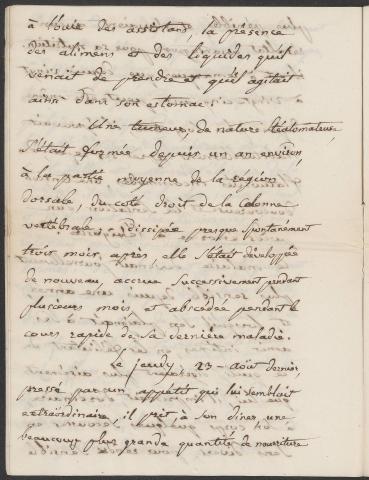 à l'ouie des assistans, la présence
des alimens et des liquides qu'il
venait de prendre et qu'il agitait
ainsi dans son estomac.
Une tumeur, de nature stéatomateuse,
s'était formée depuis un an environ,
à la partie moyenne de la région
dorsale, du coté droit de la colonne
vertébrale; dissipée presque spontanément
trois mois après, elle s'était développée
de nouveau, accrue successivement pendant
plusieurs mois, et abscédée pendant le
cours rapide de sa dernière maladie.
Le jeudy 23 août dernier,
pressé par un appétit qui lui semblait
extraordinaire, il prit à son diner une
beaucoup plus grande quantité de nourriture